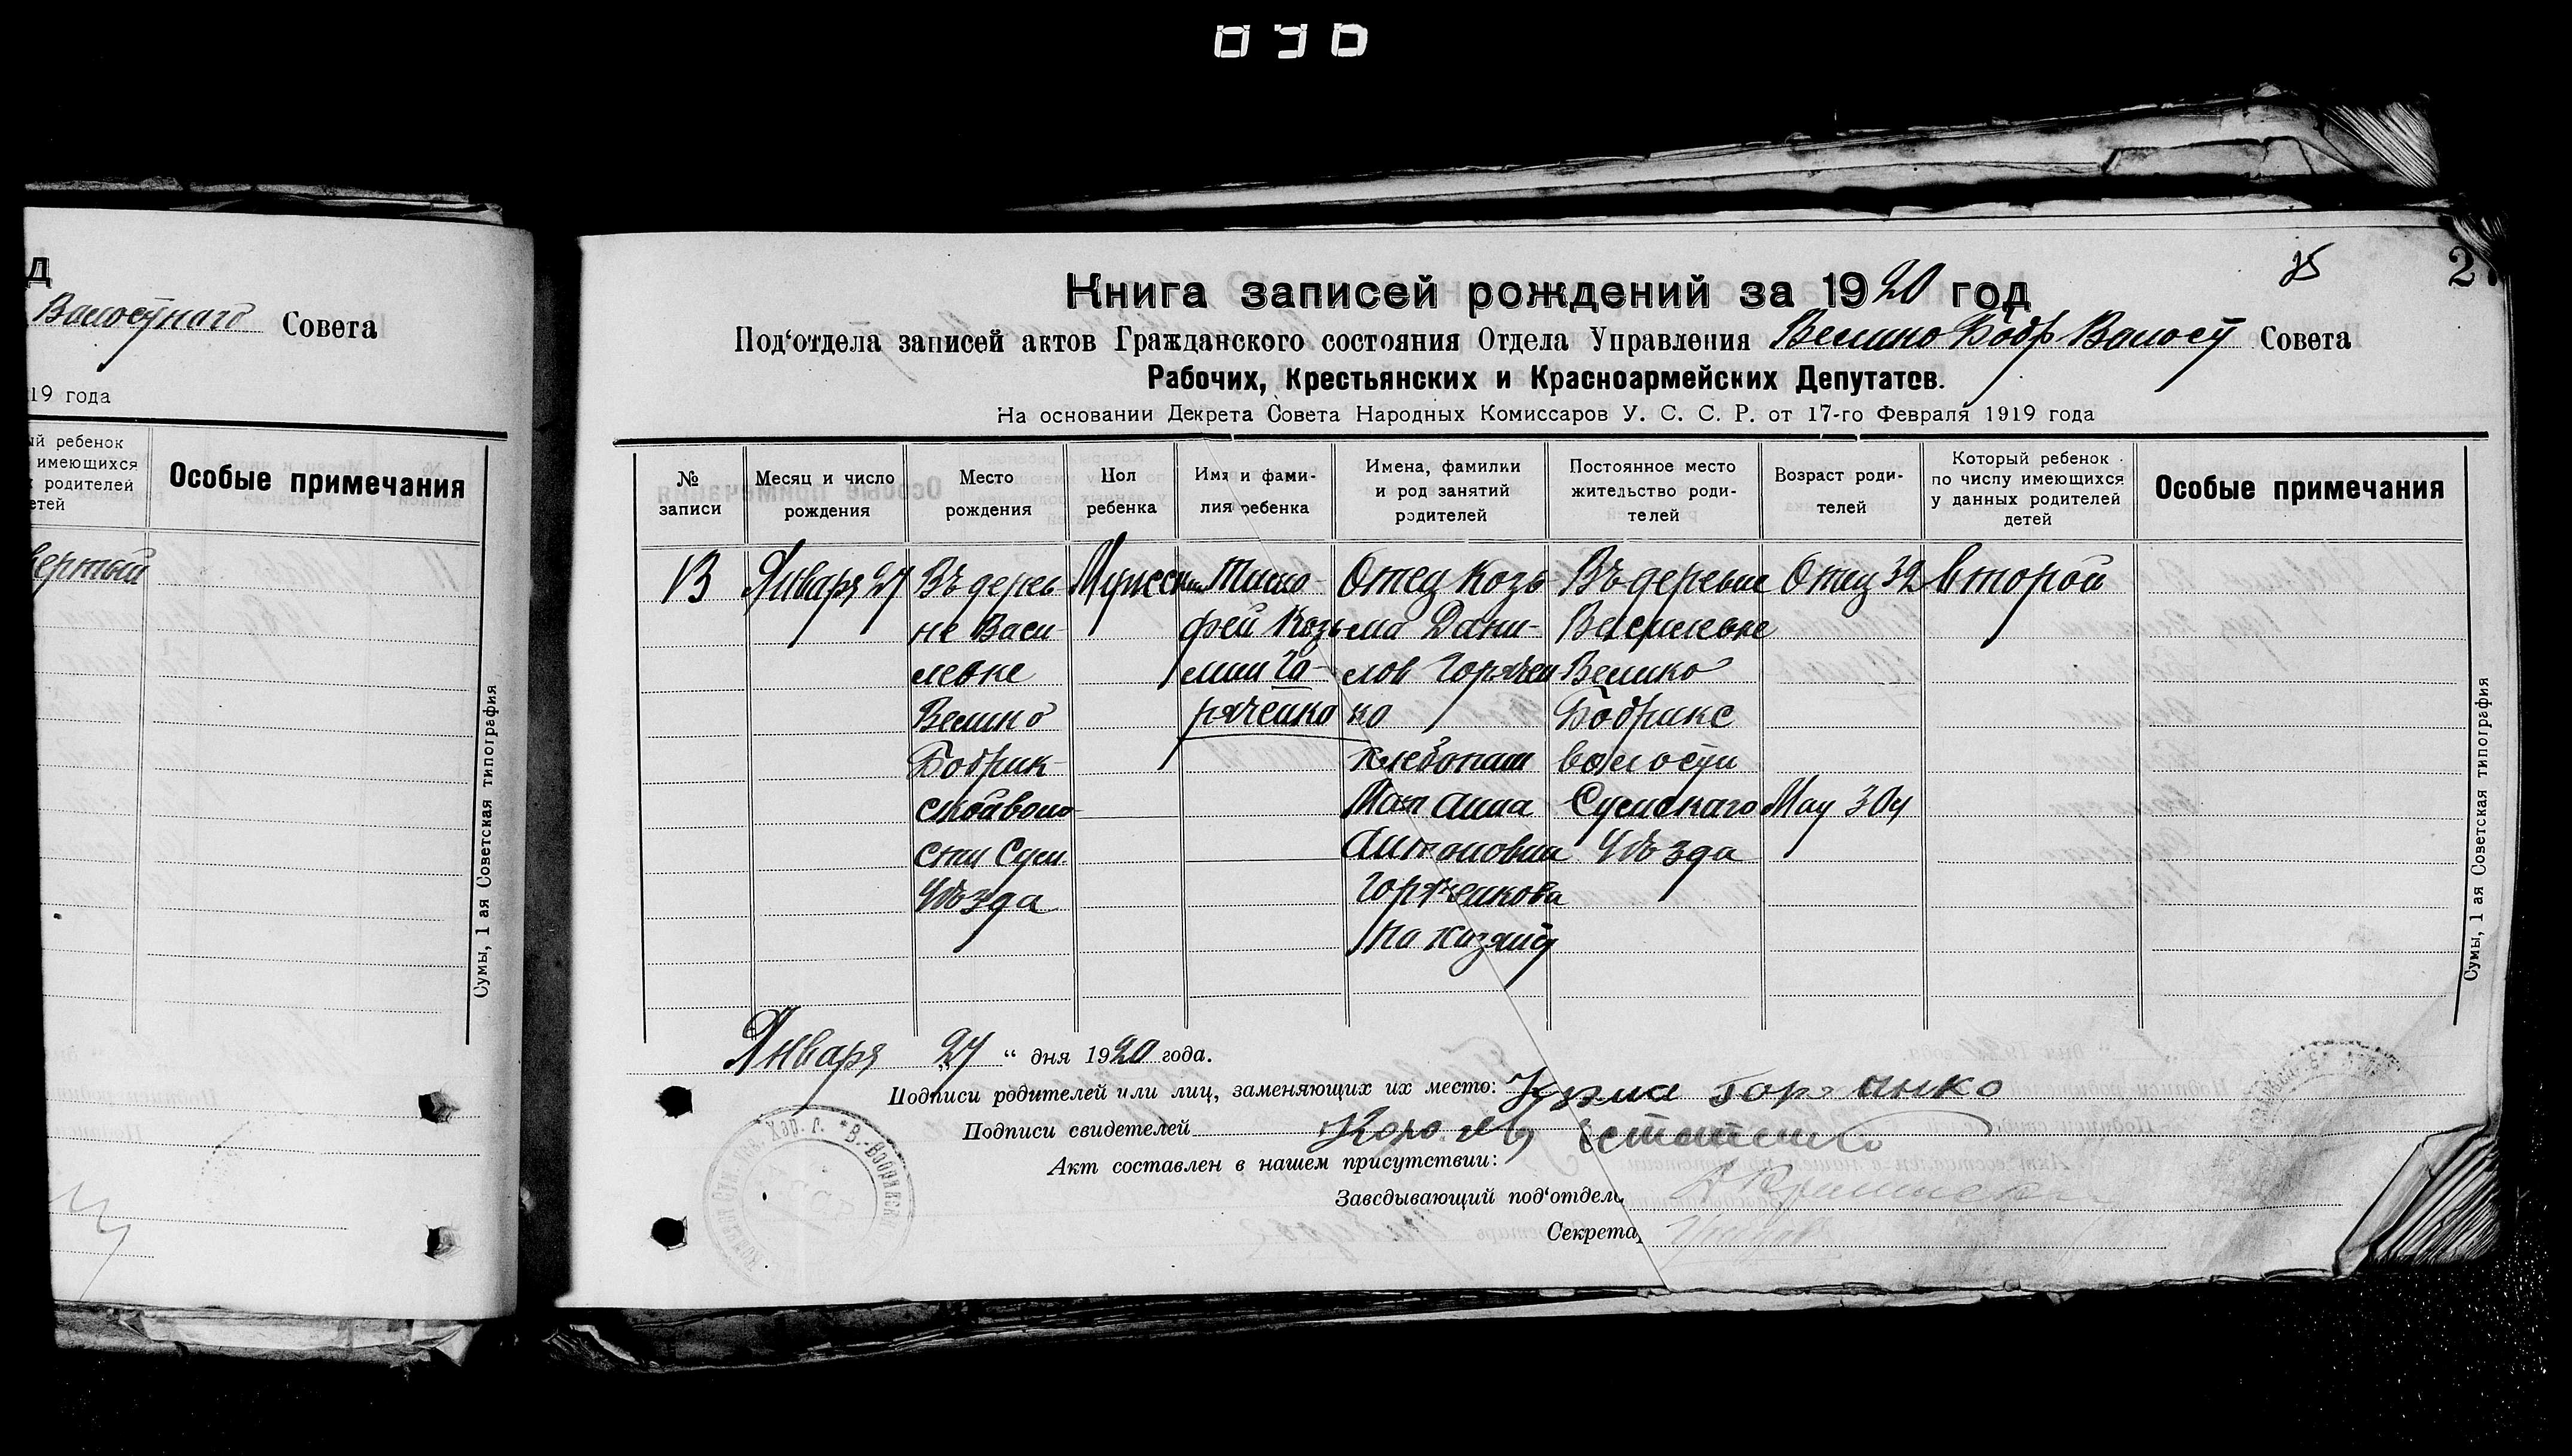 д
Волостнаго Совета
19 года
ый ребенок
имеющихся
родителей
етей
Особые примечания
вертый
Сумы, 1 ая Советская типография
25
2
Книга записей рождений за 1920 год
Под‘отдела записей актов Гражданского состояния Отдела Управления Велико Бобр Волост Совета
Рабочих, Крестьянских и Красноармейских Депутатов.
На основании Декрета Совета Народных Комиссаров У. С. С. Р. от 17-го Февраля 1919 года
№ записи
Месяц и число рождения
Место рождения
Пол ребенка
Имя и фамилия ребенка
Имена, фамилии и род занятий родителей
Постоянное место жительство родителей
Возраст родителей
Который ребенок по числу имеющихся у данных родителей детей
Особые примечания
13
Января 27
Въ дерев-
не Васи-
левке
Велико
Бобрик-
ской воло-
сти Сум
Уѣзда
Мужеск
Тимо-
фей Козь-
мин Го-
ряченко
Отец Козь-
ма Дани-
лов Горячен
ко
хлебопаш
Мат Анна
Антоновна
Горяченкова
Въ деревне
Василевке
Велико
Бобрикс
волости
Сумскаго
Уѣзда
Отец 32
Мат 30
второй
Сумы, 1 ая Советская типография
Января 27 “ дня 1920 года.
Подписи родителей или лиц, заменяющих их место:
Подписи свидетелей
Акт составлен в нашем присутствии:
Заведывающий под‘отдел.
Секрета